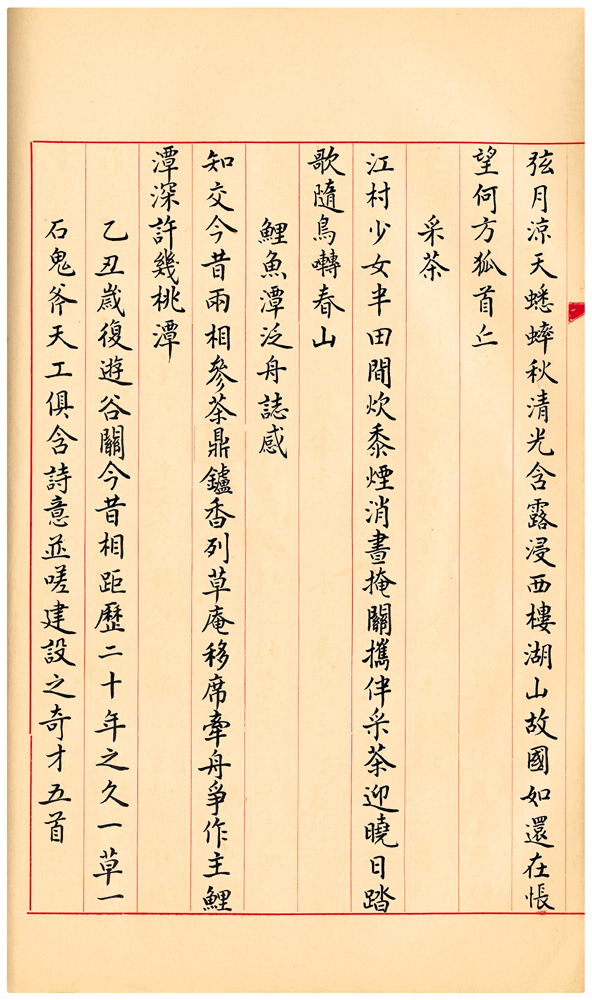 弦月涼天蟋蟀秋清光含露浸西樓湖山故國如還在悵
望何方狐首丘
采茶
江村少女半田間炊黍煙消晝掩關攜伴采茶迎曉日踏
歌隨鳥囀春山
鯉魚潭泛舟誌感
知交今昔兩相參茶鼎鑪香列草庵移席牽舟爭作主鯉
潭深許幾桃潭
乙丑歲復遊谷關今昔相距歷二十年之久一草一
石鬼斧天工俱含詩意並嗟建設之奇才五首